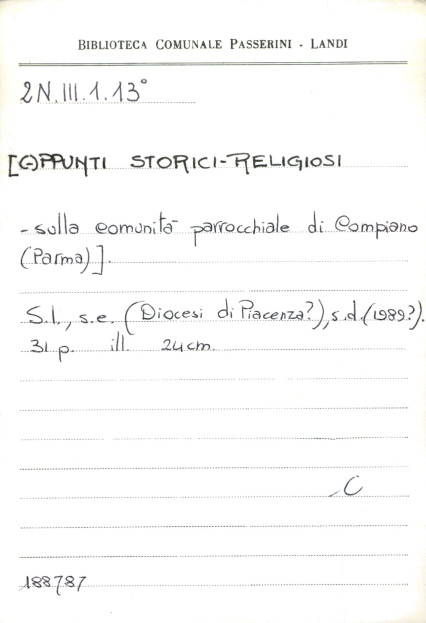 BIBLIOTECA COMUNALE PASSERINI - LANDI
2N.III.1.13°
[APPUNTI STORICI-RELIGIOSI
- sulla comunità parrocchiale di Compiano
(Parma)].
S.l., s.e. (Diocesi di Piacenza?), s.d. (1989?).
31 p. ill. 24cm.
C
188787